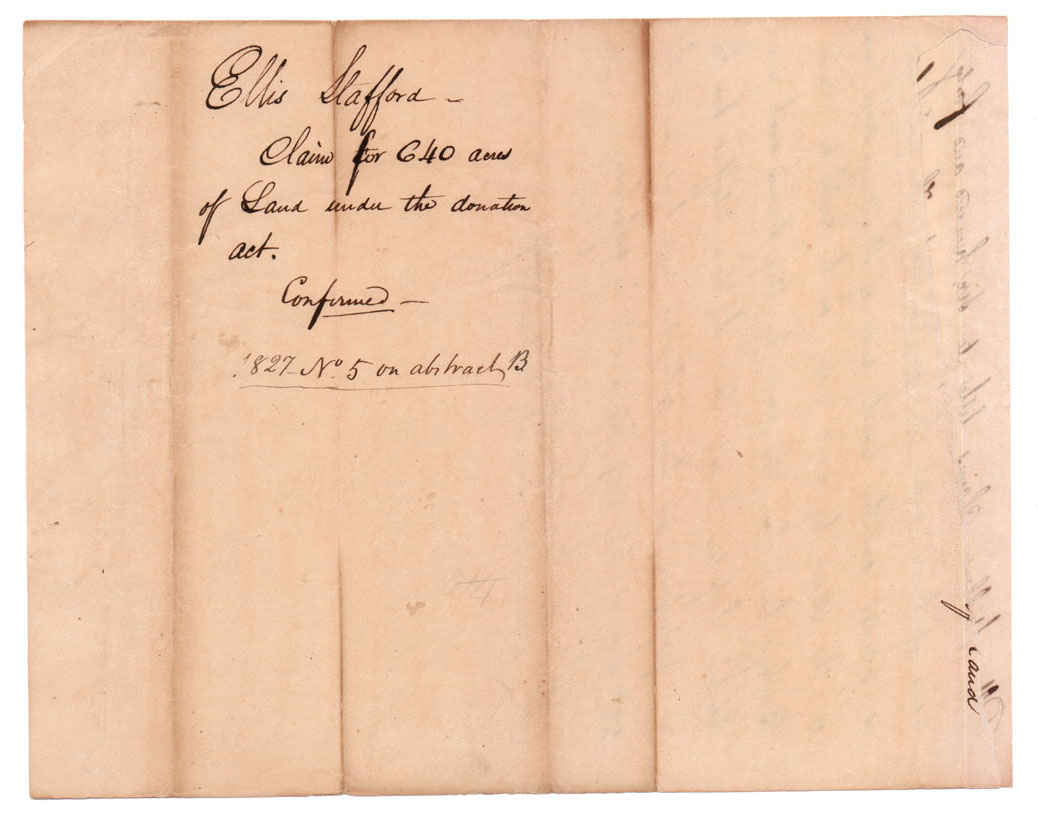 Ellis Stafford –
Claim for 640 acres
of Land under the donation
act.
Confirmed –
1827 No 5 on abstract B
and